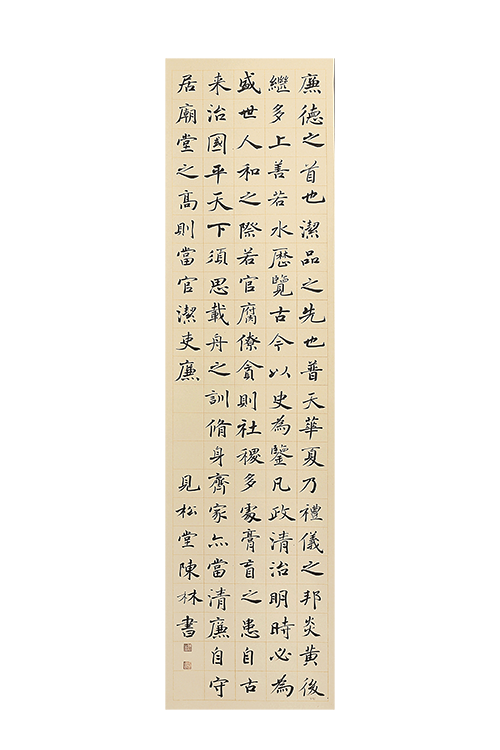 廉德之首也潔品之先也普天華夏乃禮儀之邦炎黃後
繼多上善若水歷覽古今以史為鑒凡政清治明時必為
盛世人和之際若官腐僚貪則社稷多處膏肓之患自古
来治國平天下須思載舟之訓脩身齊家亦當清廉自守
居廟堂之高則當官潔吏廉
見松堂陳林書